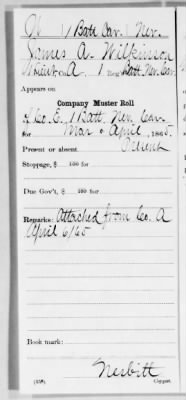 1 Batt. Cav. Nev.
James A. Wilkinson
A, 1 Reg't Batt. Nev. Cav.
Appears on
Company Muster Roll
of Co. E, 1 Batt. Nev. Cav.
for Mar & April, 1865.
Present or absent. Present
Stoppage, $ 100 for
Due Gov't, $ 100 for
Remarks: Attached from Co. A
April 6/65
Book mark:
Nesbitt
(358) Copyist.